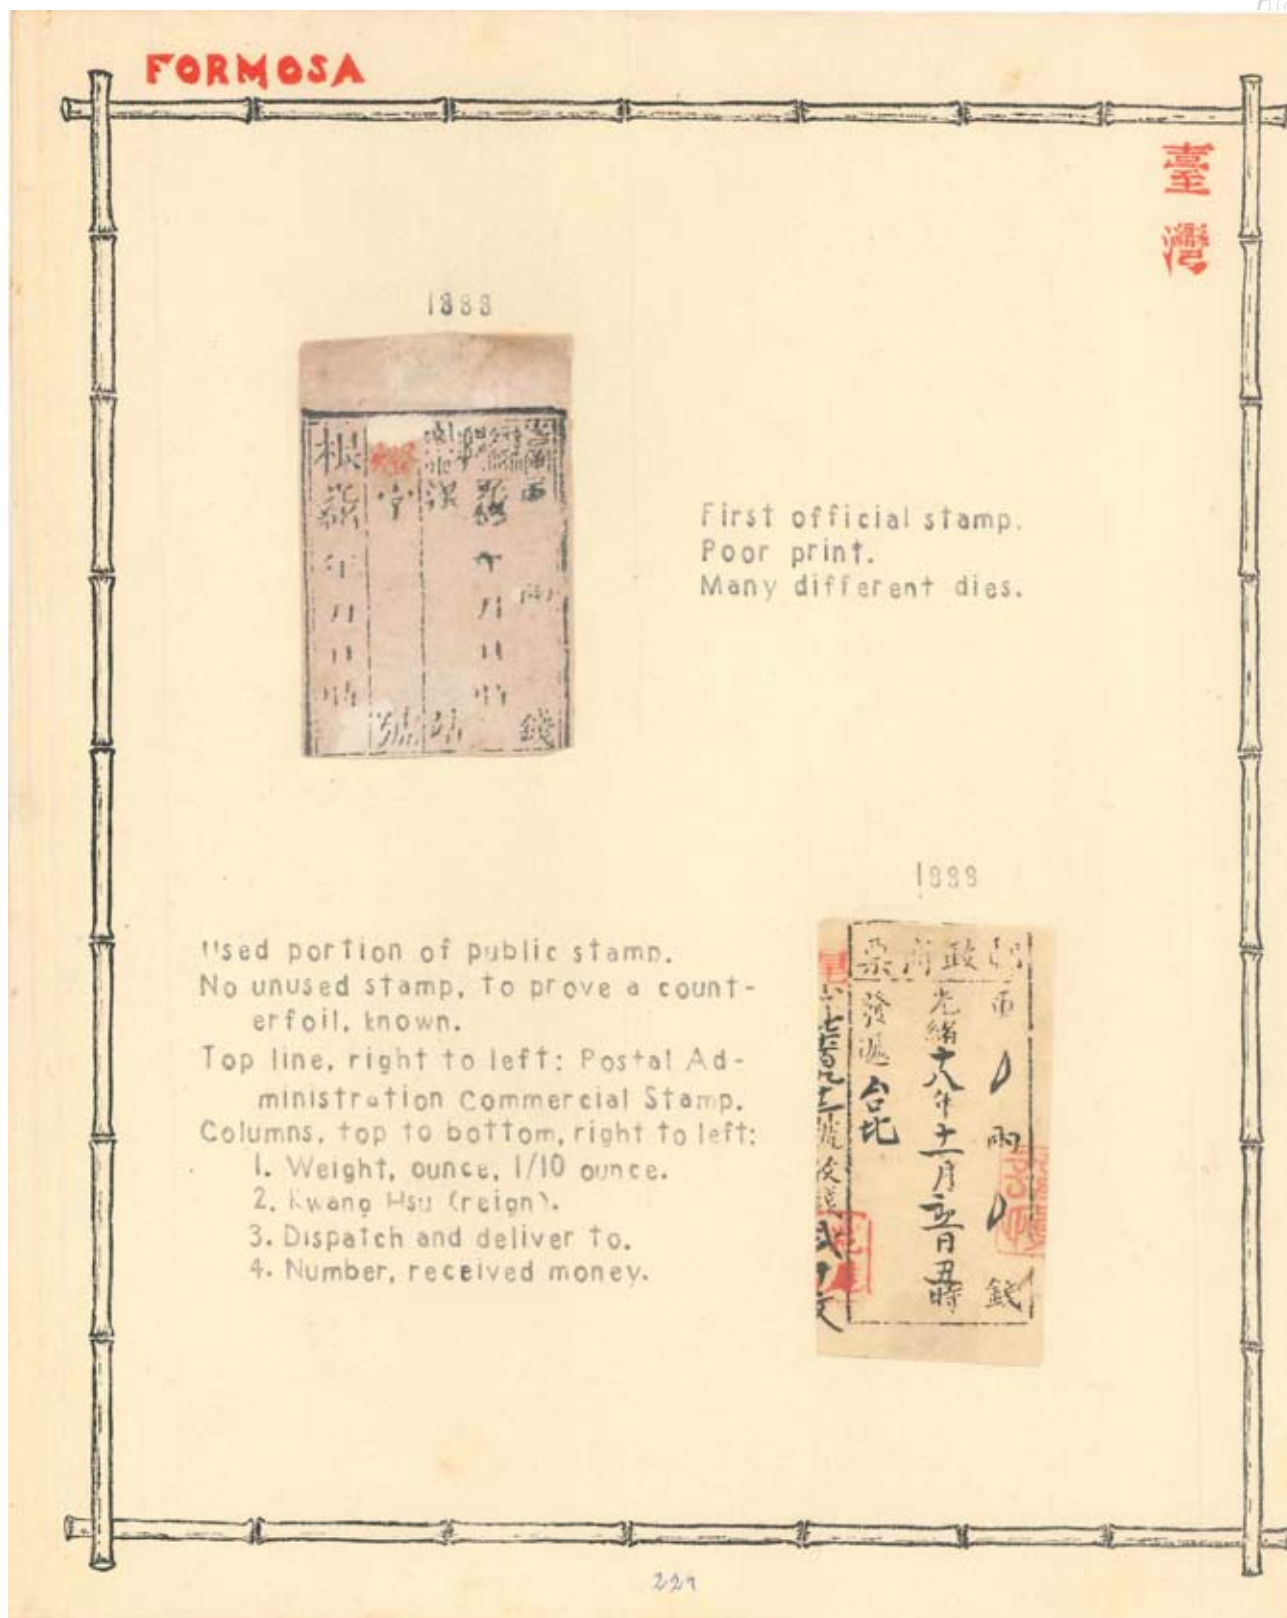 FORMOSA
臺
灣
1888
根
字
年
月
日
月
日
錢
號
First official stamp.
Poor print.
Many different dies.
1888
Used portion of public stamp.
No unused stamp, to prove a count-
erfoil, known.
Top line, right to left: Postal Ad-
ministration Commercial Stamp.
Columns, top to bottom, right to left:
1. Weight, ounce, 1/10 ounce.
2. Kwang Hsu (reign).
3. Dispatch and deliver to.
4. Number, received money.
郵政商票
兩 錢
光緒十八年十一月 日丑時
發遞台北
號收錢